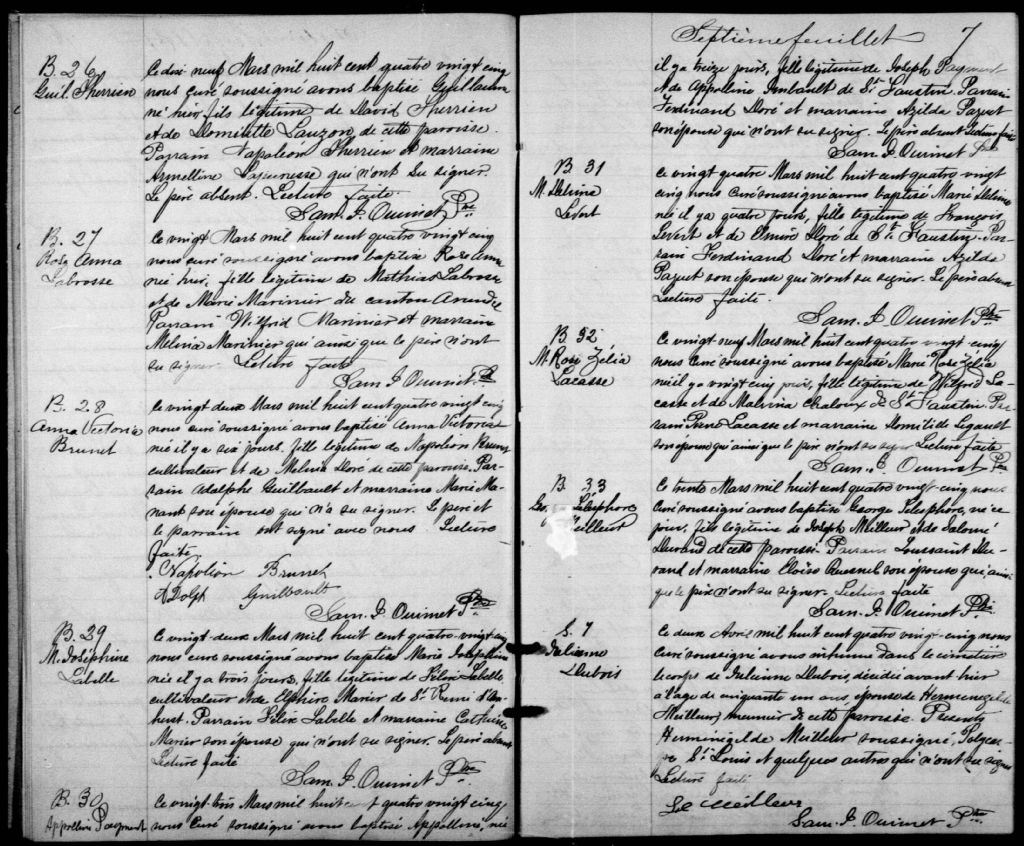 B. 26
Guil. Therrien
Ce dix neuf Mars mil huit cent quatre vingt cinq
nous curé soussigné avons baptisé Guillaume
né hier, fils légitime de David Therrien
et de Domitille Lauzon de cette paroisse.
Parrain Napoléon Therrien et marraine
Armelline Lajeunesse qui n'ont su signer.
Le père absent. Lecture faite.
Sam. J. Ouimet Ptre
B. 27
Rose Anna
Labrosse
Ce vingt Mars mil huit cent quatre vingt cinq
nous curé soussigné avons baptisé Rose Anna
née hier, fille légitime de Mathias Labrosse
et de Marie Marinier du canton Arundel
Parrain Wilfrid Marinier et marraine
Melina Marinier qui ainsi que le père n'ont
su signer. Lecture faite
Sam. J. Ouimet Ptre
B. 28
Anna Victoria
Brunet
Ce vingt deux Mars mil huit cent quatre vingt cinq
nous curé soussigné avons baptisé Anna Victoria
née il y a six jours, fille légitime de Napoléon Brunet
cultivateur et de Melina Doré de cette paroisse. Par-
rain Adolphe Guilbault et marraine Marie Ma-
nant son épouse qui n'a su signer. Le père et
le parrain ont signé avec nous Lecture
faite.
Napoléon Brunet
ADolph Guilbault
Sam. J. Ouimet Ptre
B. 29
M. Joséphine
Labelle
Ce vingt-deux Mars mil huit cent quatre-vingt cinq
nous curé soussigné avons baptisé Marie Joséphine
née il y a trois jours, fille légitime de Félix Labelle
cultivateur et de Elphire Marier de St. Remi d'Am-
herst. Parrain Félix Labelle et marraine Catherine
Marier son épouse qui n'ont su signer. Le père absent
Lecture faite
Sam. J. Ouimet Ptre
B. 30
Appolline Paiment
Ce vingt-trois Mars mil huit cent quatre vingt cinq
nous Curé soussigné avons baptisé Appolline, née
Septième feuillet 7
il y a treize jours, fille légitime de Joseph Payment
et de Appolline Imbault de St. Faustin. Parrain
Ferdinand Doré et marraine Azilda Paquet
son épouse qui n'ont su signer. Le père absent Lecture faite
Sam. J. Ouimet Ptre
B. 31
M. Delvina
Levert
Ce vingt quatre Mars mil huit cent quatre vingt
cinq nous Curé soussigné avons baptisé Marie Delvina
née il y a quatre jours, fille légitime de François
Levert et de Onésire Doré de St. Faustin. Par-
rain Ferdinand Doré et marraine Azilda
Paquet son épouse qui n'ont su signer. Le père absent
Lecture faite.
Sam. J. Ouimet Ptre
B. 32
M. Rose Zélia
Lacasse
Ce vingt-neuf Mars mil huit cent quatre vingt-cinq
nous Curé soussigné avons baptisé Marie Rose Zélia
née il y a vingt cinq jours, fille légitime de Wilfred La-
casse et de Malvina Chaloux de St. Faustin. Par-
rain Lacasse et marraine Domitilde Legault
son épouse qui ainsi que le père n'ont su signer Lecture faite
Sam. J. Ouimet Ptre
B. 33
Geo. Télesphore
Meilleur
Ce trente Mars mil huit cent quatre vingt-cinq nous
Curé soussigné avons baptisé George Télesphore, né ce
jour, fils légitime de Joseph Meilleur et de Salomé
Durand de cette paroisse. Parrain Toussaint Du-
rand et marraine Eloïse Quesnel son épouse qui ainsi
que le père n'ont su signer. Lecture faite
Sam. J. Ouimet Ptre
S. 7
Julienne
Dubois
Ce deux Avril mil huit cent quatre vingt-cinq nous
Curé soussigné avons inhumé dans le cimetière
le corps de Julienne Dubois, décédée avant hier
à l'âge de cinquante un ans, épouse de Hermenegilde
Meilleur, meunier de cette paroisse. Présents
Herminigilde Meilleur soussigné, Polycar-
pe St. Louis et quelques autres qui n'ont su signer
Lecture faite
Meilleur
Sam. J. Ouimet Ptre